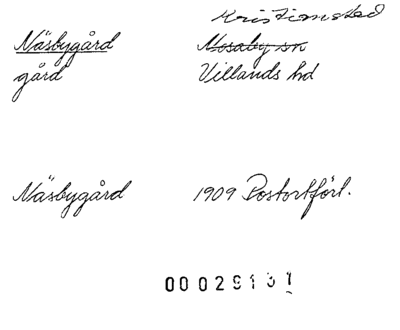 Kristianstad
Näsbygård Mosaby sn
gård Villands hd
Näsbygård 1909 Postortförl.